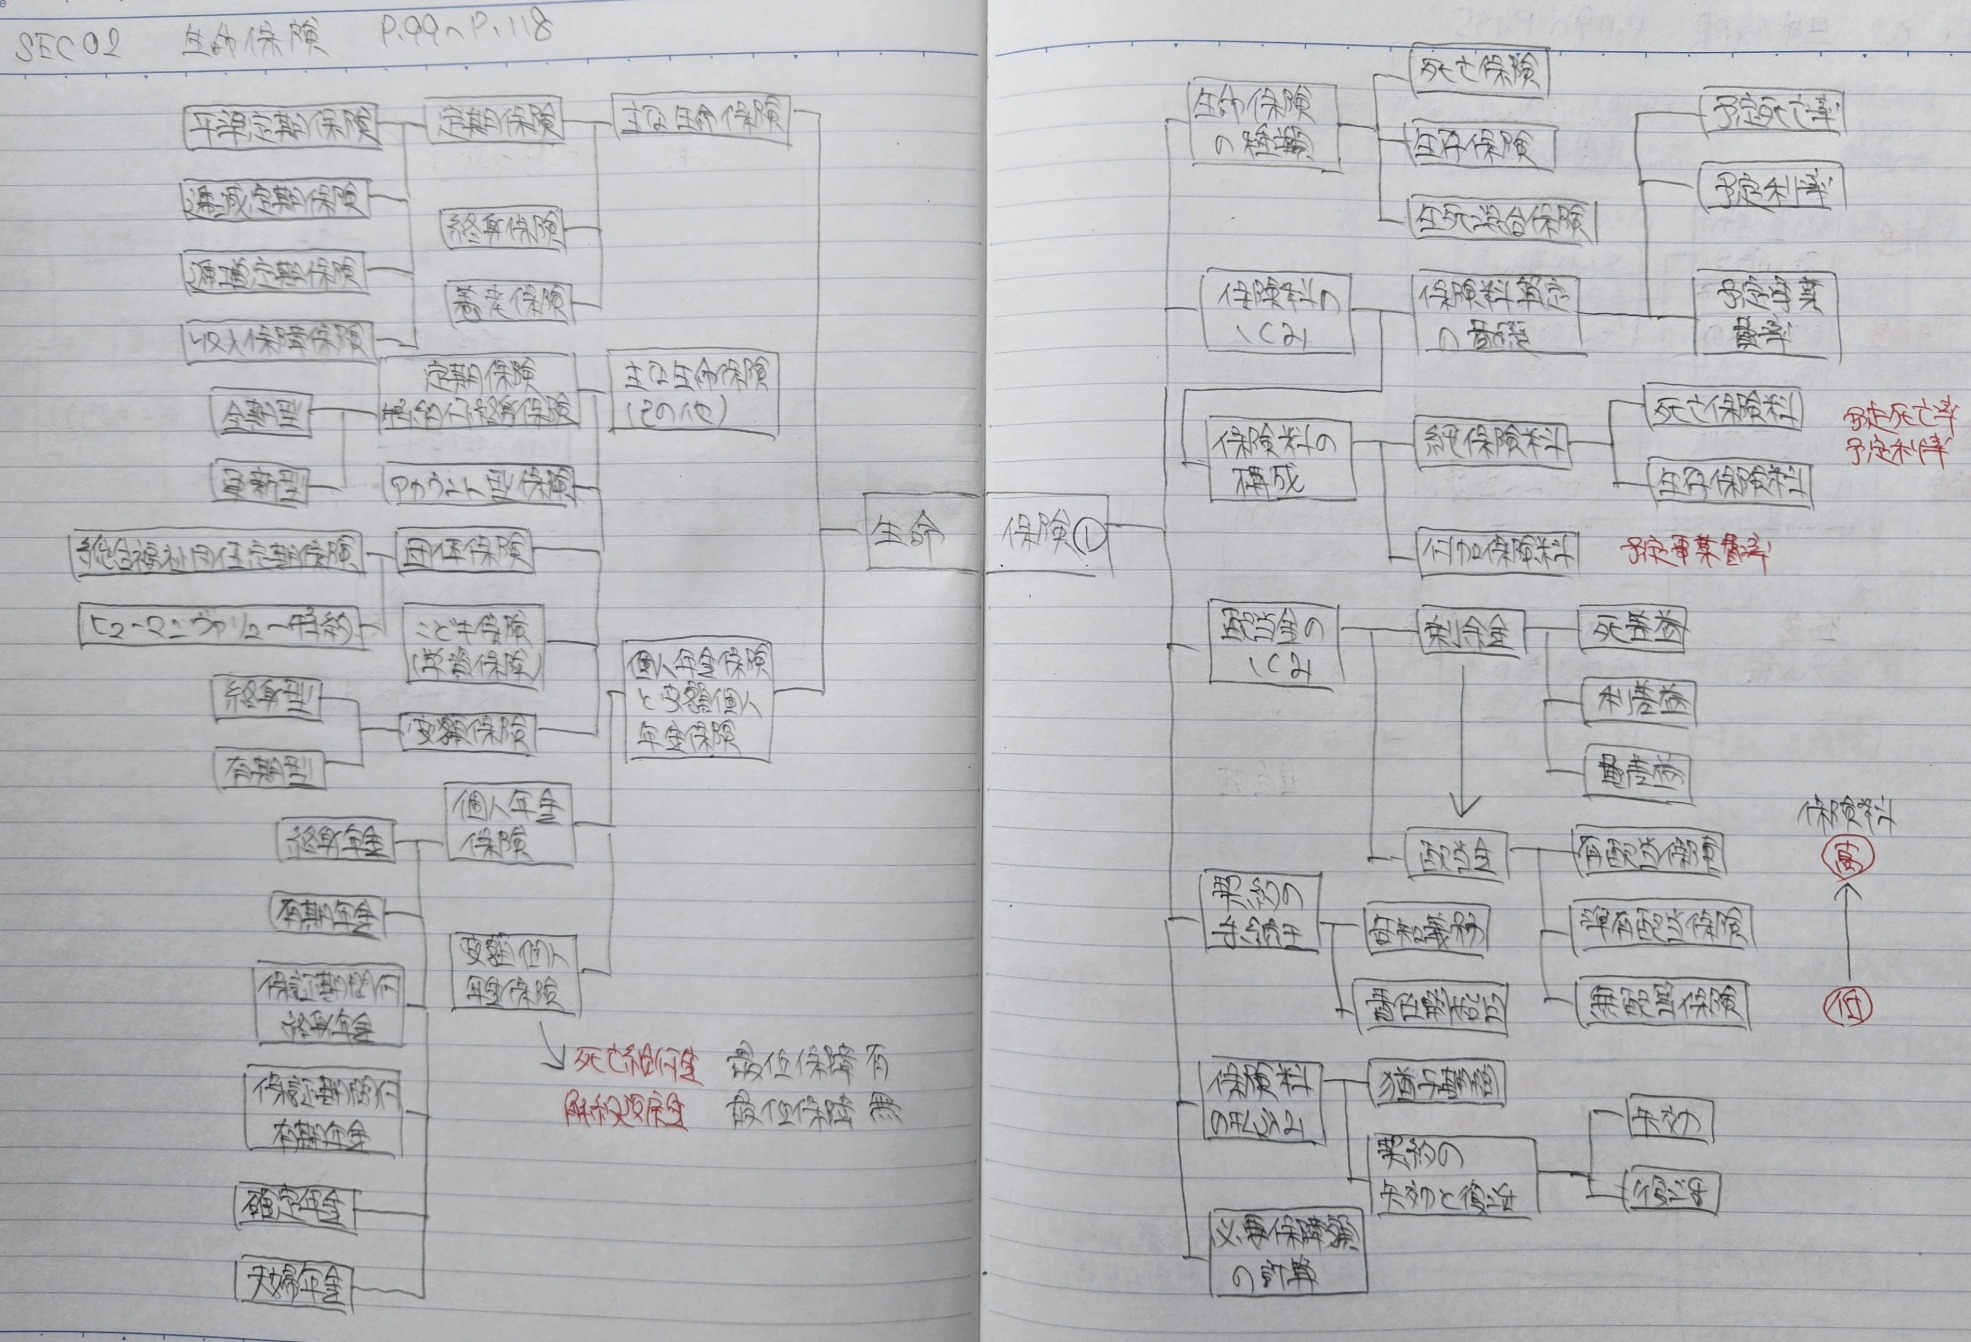 SEC02 生命保険 P.99〜P.118
平準定期保険
定期保険
主な生命保険
逓減定期保険
終身保険
逓増定期保険
養老保険
収入保障保険
定期保険
特約付終身保険
主な生命保険
(その他)
全期型
更新型
アカウント型保険
総合福祉団体定期保険
団体保険
ヒューマンヴァリュー特約
こども保険
(学資保険)
終身型
変額保険
有期型
個人年金保険
と変額個人
年金保険
個人年金
保険
終身年金
有期年金
変額個人
年金保険
保証期間付
終身年金
死亡給付金 最低保障有
解約返戻金 最低保障無
保証期間付
有期年金
確定年金
夫婦年金
生命保険①
生命保険
の種類
死亡保険
生存保険
生死混合保険
予定死亡率
予定利率
保険料の
しくみ
保険料算定
の基礎
予定事業
費率
保険料の
構成
純保険料
死亡保険料
生存保険料
予定死亡率
予定利率
付加保険料
予定事業費率
配当金の
しくみ
剰余金
死差益
利差益
費差益
配当金
有配当保険
準有配当保険
無配当保険
保険料
高
低
契約の
手続き
告知義務
責任開始日
保険料
の払込み
猶予期間
契約の
失効と復活
失効
復活
必要保障額
の計算